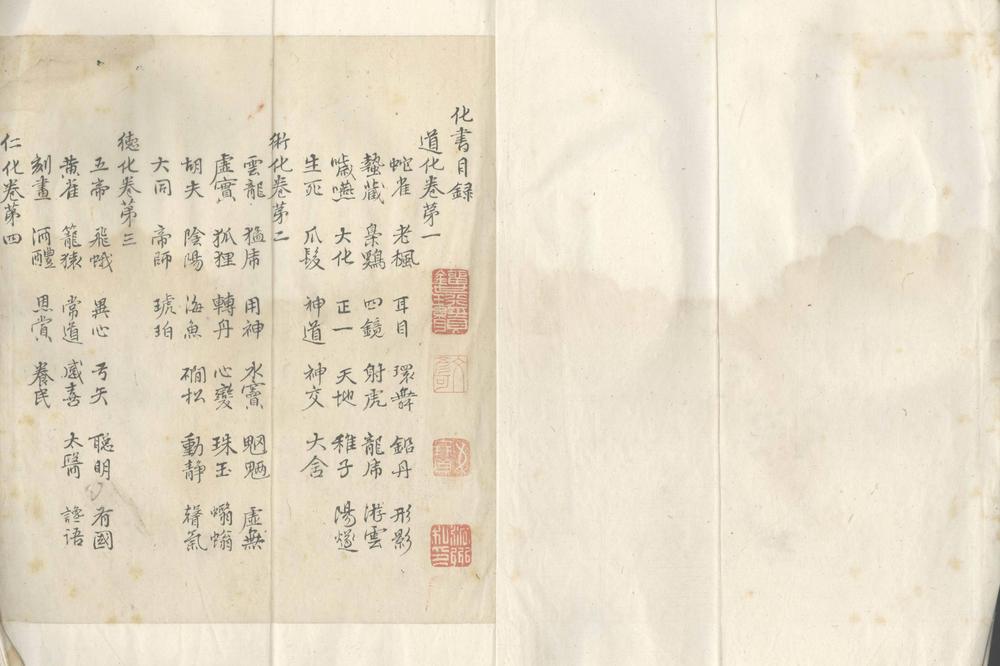 化書目録
道化卷苐一
蛇雀 老楓 耳目 環舞 鉛丹 形影
蟄藏 梟鷄 四鏡 射虎 龍虎 游雲
噦嚥 大化 正一 天地 稚子 陽燧
生死 爪髮 神道 神交 大含
術化卷苐二
雲龍 猛虎 用神 水竇 魍魎 虚無
虚實 狐狸 轉丹 心變 珠玉 螉螉
胡夫 陰陽 海魚 磵松 動静 聲氣
大同 帝師 琥珀
徳化卷苐三
五帝 飛蛾 異心 弓矢 聡明 有國
黄雀 籠猿 常道 感喜 太醫 讒語
刻畫 酒醴 恩賞 養民
仁化卷苐四